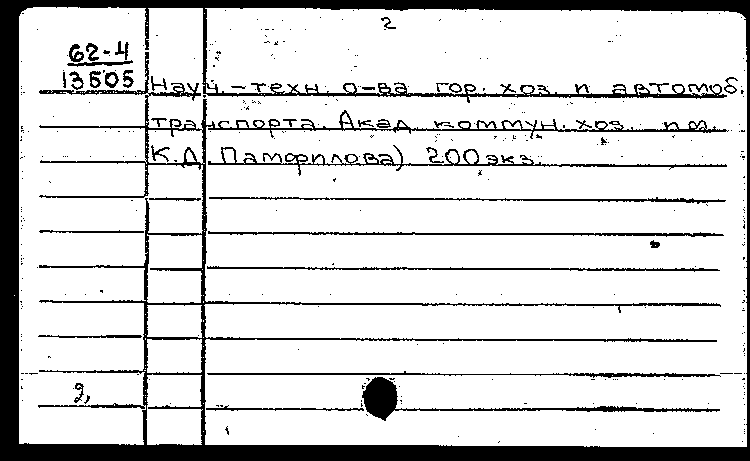 2
62-4
13505
Науч.-техн. о-ва гор. хоз. и автомоб.
транспорта. Акад коммун. хоз. им.
К.Д. Памфилова) 200 экз.
2,